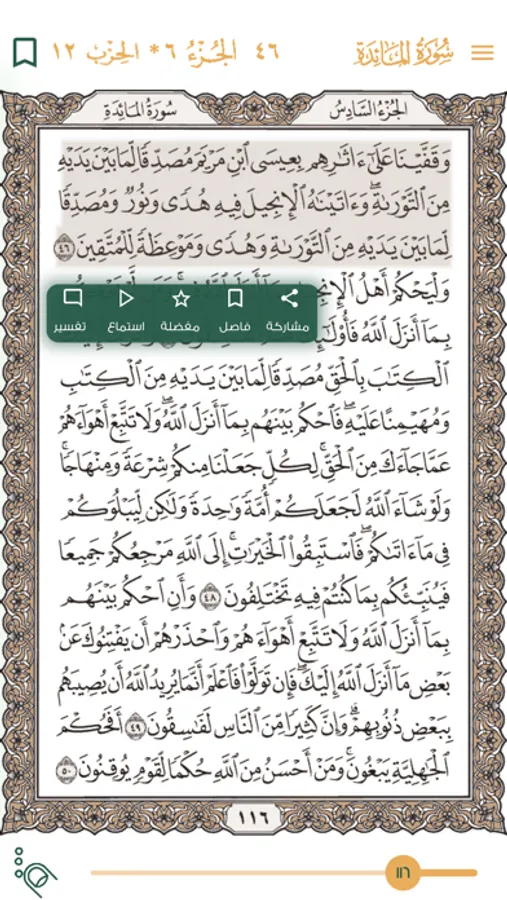 سُورَةُ المَائِدَةِ ٤٦ الجُزْءُ ٦ * الحِزْب ١٢
الجُزْءُ السَّادِسُ سُورَةُ المَائِدَةِ
وَقَفَّيْنَا عَلَىٰٓ ءَاثَٰرِهِم بِعِيسَى ٱبْنِ مَرْيَمَ مُصَدِّقًا لِّمَا بَيْنَ يَدَيْهِ
مِنَ ٱلتَّوْرَىٰةِۖ وَءَاتَيْنَٰهُ ٱلْإِنجِيلَ فِيهِ هُدًى وَنُورٌ وَمُصَدِّقًا
لِّمَا بَيْنَ يَدَيْهِ مِنَ ٱلتَّوْرَىٰةِ وَهُدًى وَمَوْعِظَةً لِّلْمُتَّقِينَ ٤٦
وَلْيَحْكُمْ أَهْلُ ٱلْإِنجِيلِ
مشاركة فاصل مفضلة استماع تفسير
بِمَآ أَنزَلَ ٱللَّهُ
ٱلْكِتَٰبَ بِٱلْحَقِّ مُصَدِّقًا لِّمَا بَيْنَ يَدَيْهِ مِنَ ٱلْكِتَٰبِ
وَمُهَيْمِنًا عَلَيْهِۖ فَٱحْكُم بَيْنَهُم بِمَآ أَنزَلَ ٱللَّهُۖ وَلَا تَتَّبِعْ أَهْوَآءَهُمْ
عَمَّا جَآءَكَ مِنَ ٱلْحَقِّۚ لِكُلٍّ جَعَلْنَا مِنكُمْ شِرْعَةً وَمِنْهَاجًاۚ
وَلَوْ شَآءَ ٱللَّهُ لَجَعَلَكُمْ أُمَّةً وَٰحِدَةً وَلَٰكِن لِّيَبْلُوَكُمْ
فِى مَآ ءَاتَىٰكُمْۖ فَٱسْتَبِقُوا۟ ٱلْخَيْرَٰتِۚ إِلَى ٱللَّهِ مَرْجِعُكُمْ جَمِيعًا
فَيُنَبِّئُكُم بِمَا كُنتُمْ فِيهِ تَخْتَلِفُونَ ٤٨ وَأَنِ ٱحْكُم بَيْنَهُم
بِمَآ أَنزَلَ ٱللَّهُ وَلَا تَتَّبِعْ أَهْوَآءَهُمْ وَٱحْذَرْهُمْ أَن يَفْتِنُوكَ عَنۢ
بَعْضِ مَآ أَنزَلَ ٱللَّهُ إِلَيْكَۖ فَإِن تَوَلَّوْا۟ فَٱعْلَمْ أَنَّمَا يُرِيدُ ٱللَّهُ أَن يُصِيبَهُم
بِبَعْضِ ذُنُوبِهِمْۗ وَإِنَّ كَثِيرًا مِّنَ ٱلنَّاسِ لَفَٰسِقُونَ ٤٩ أَفَحُكْمَ
ٱلْجَٰهِلِيَّةِ يَبْغُونَۚ وَمَنْ أَحْسَنُ مِنَ ٱللَّهِ حُكْمًا لِّقَوْمٍ يُوقِنُونَ ٥٠
١١٦
١١٦